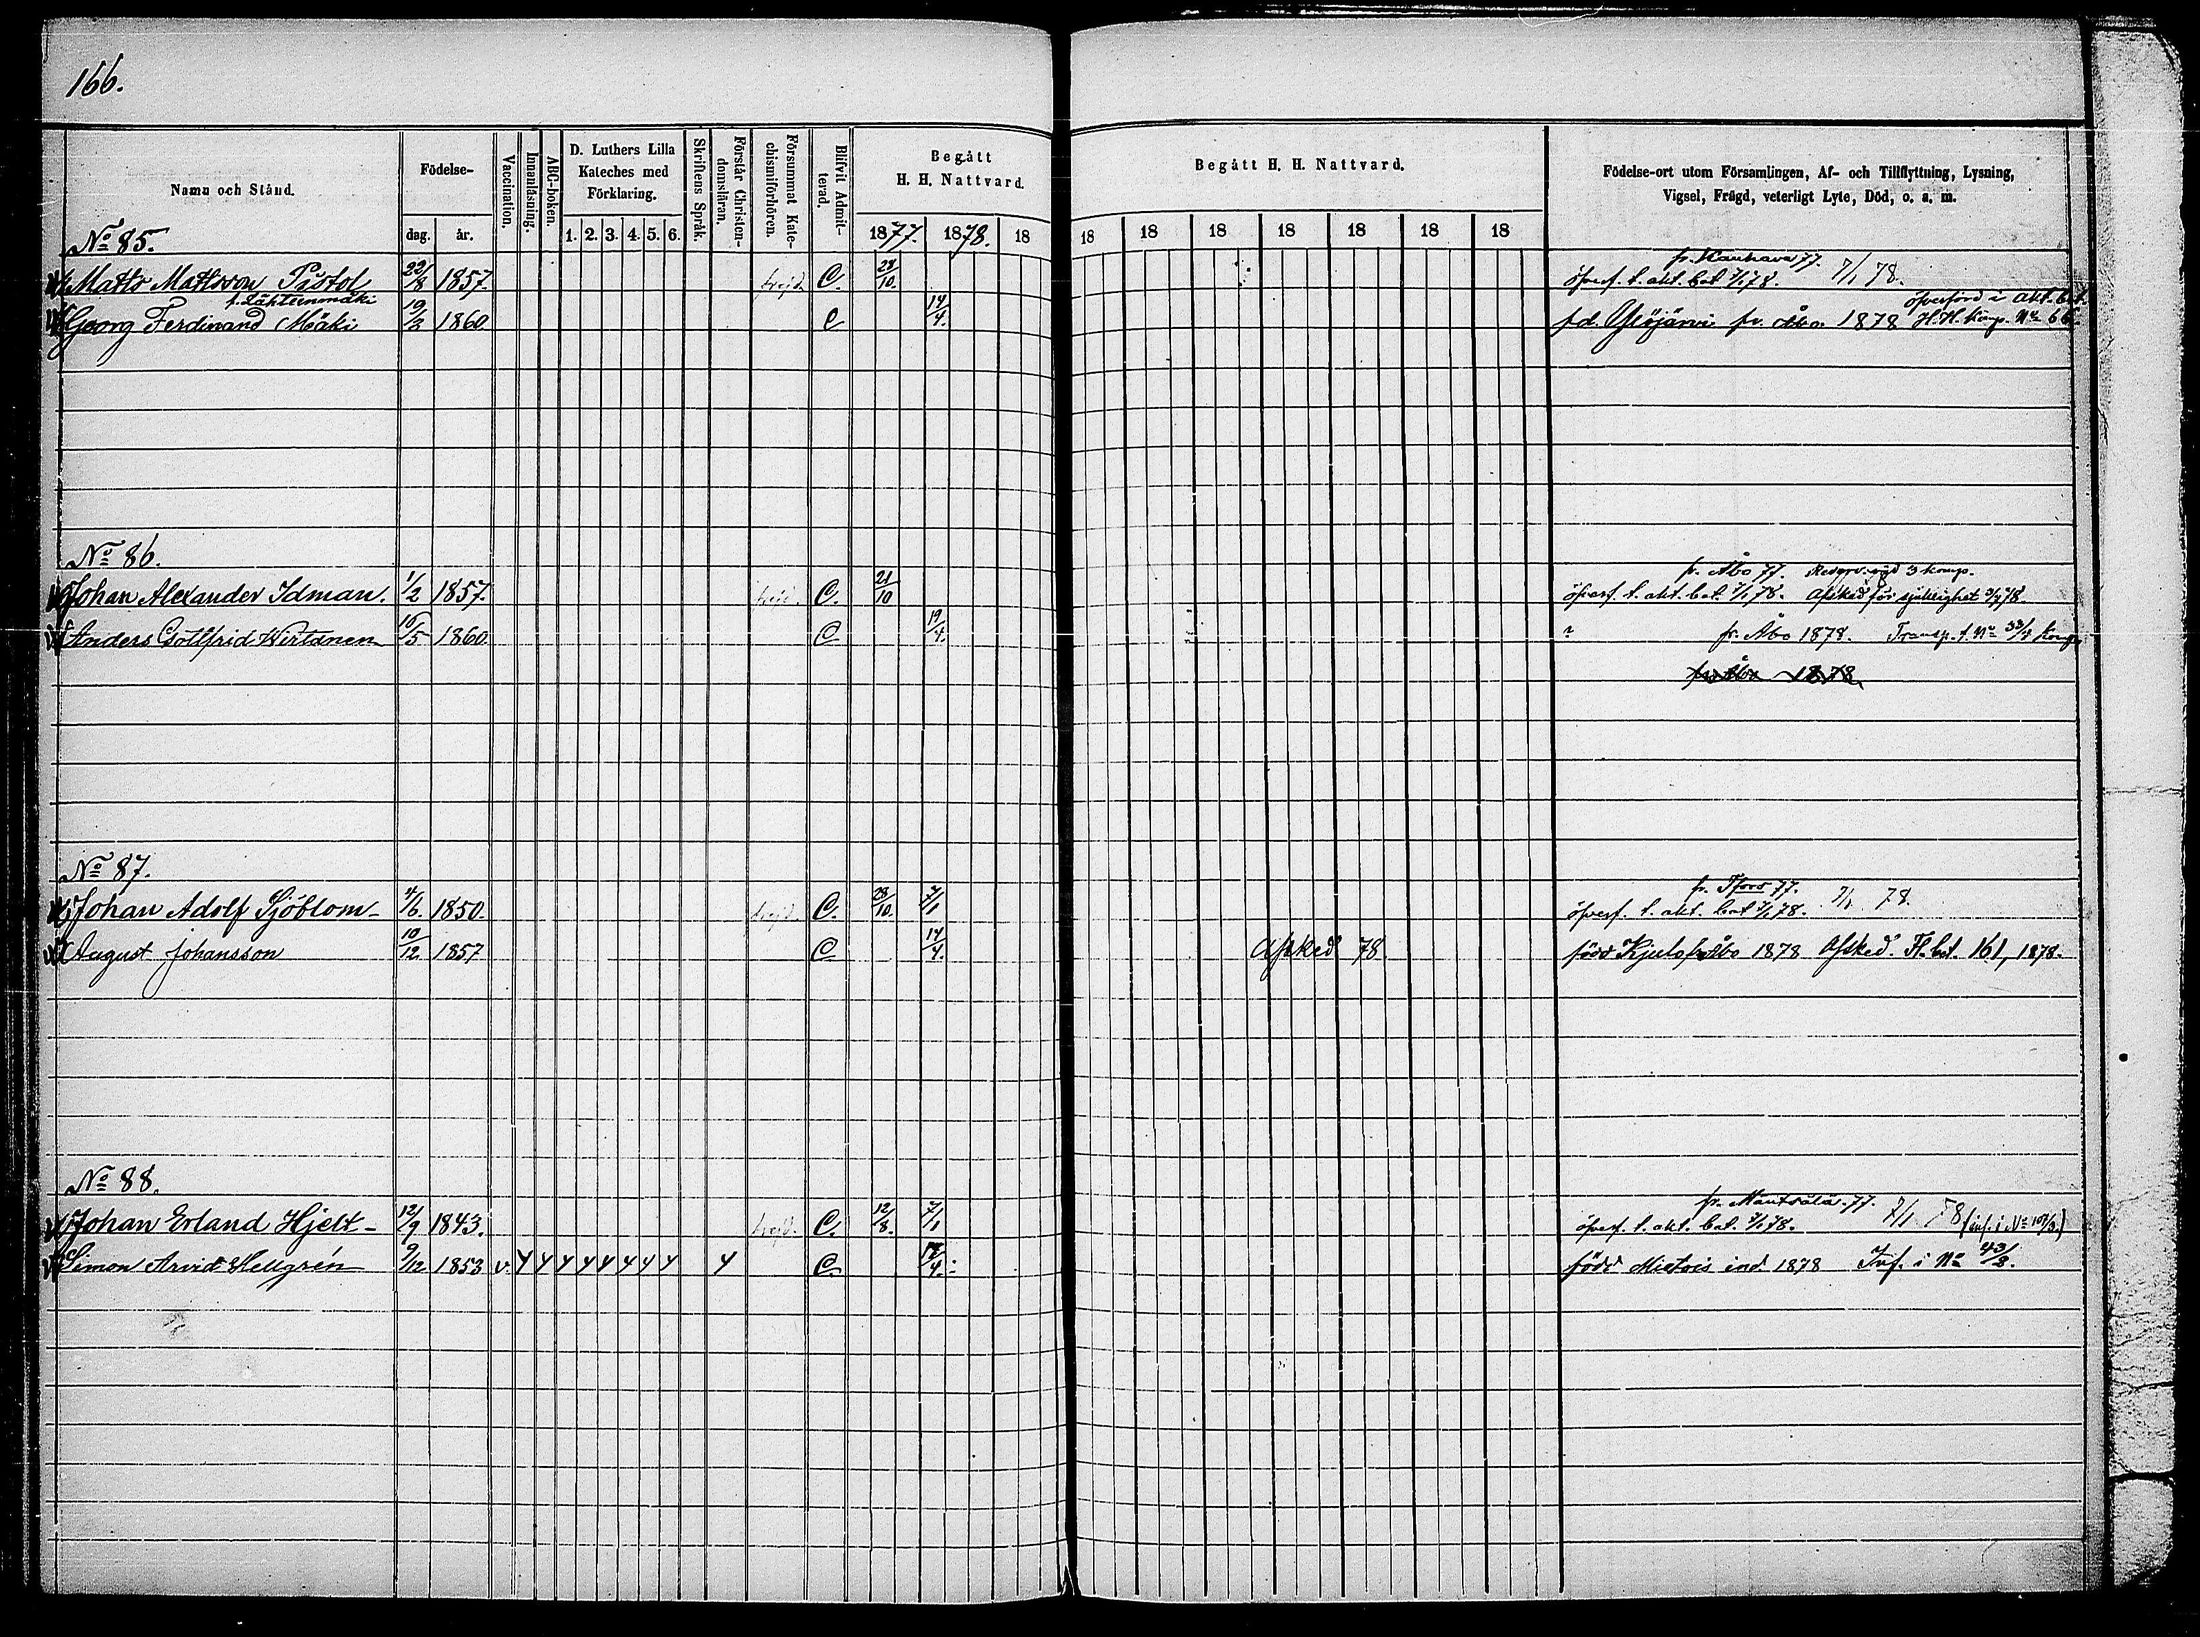 166.
Namn och Stånd.
Födelse-
dag. år.
Vaccination.
Innanläsning.
ABC-boken.
D. Luthers Lilla Kateches med Förklaring.
1. 2. 3. 4. 5. 6.
Skriftens Språk.
Förstår Christendomsläran.
Försummat Katechismiförhören.
Blifvit Admitterad.
Begått H. H. Nattvard.
1877. 1878. 18
Begått H. H. Nattvard.
18 18 18 18 18 18 18
Födelse-ort utom Församlingen, Af- och Tillflyttning, Lysning,
Vigsel, Frägd, veterligt Lyte, Död, o. s. m.
No 85.
fr. Kauhava 77.
Matts Mattsson Pistol 22/8 1857. frejd. C. 28/10. öferf. t. akt. bat. 7/1 78. 7/1 78.
f. Lähteenmäki öfverförd i akt. bat.
Georg Ferdinand Mäki 19/3 1860 C 14/4. fd. Ylöjärvi fr. Åbo 1878 H. H. komp. No 66.
No 86.
fr. Åbo 77. Reserv. 3 komp.
Johan Alexander Idman. 1/2 1857. frejd. C. 21/10 öferf. t. akt. bat. 7/1 78. Afsked för sjuklighet 78.
Anders Gottfrid Wirtanen 16/5 1860. C 19/4. ? fr. Åbo 1878. Transp. t. No 33/4 komp.
fr. Åbo 1878.
No 87.
fr. 77.
Johan Adolf Sjöblom 4/6. 1850. frejd. C. 28/10. 7/1 öferf. t. akt. bat 7/1 78. 7/1 78.
August Johansson 10/12 1857 C 14/4. Afsked 78. född Kjulo fr. Åbo 1878 Afsked. Fl. bet. 161, 1878.
No 88.
fr. Mäntsälä. 77.
Johan Erland Hjelt 12/9 1843. frejd. C. 12/8. 7/1 öferf. t. akt. bat. 7/1 78. 7/1 78 (inf. i No 107/3.)
Simon Arvid Hellgrén 9/12 1853 v. C. 14/4. född Mietois ind 1878 Inf. i No 43/3.